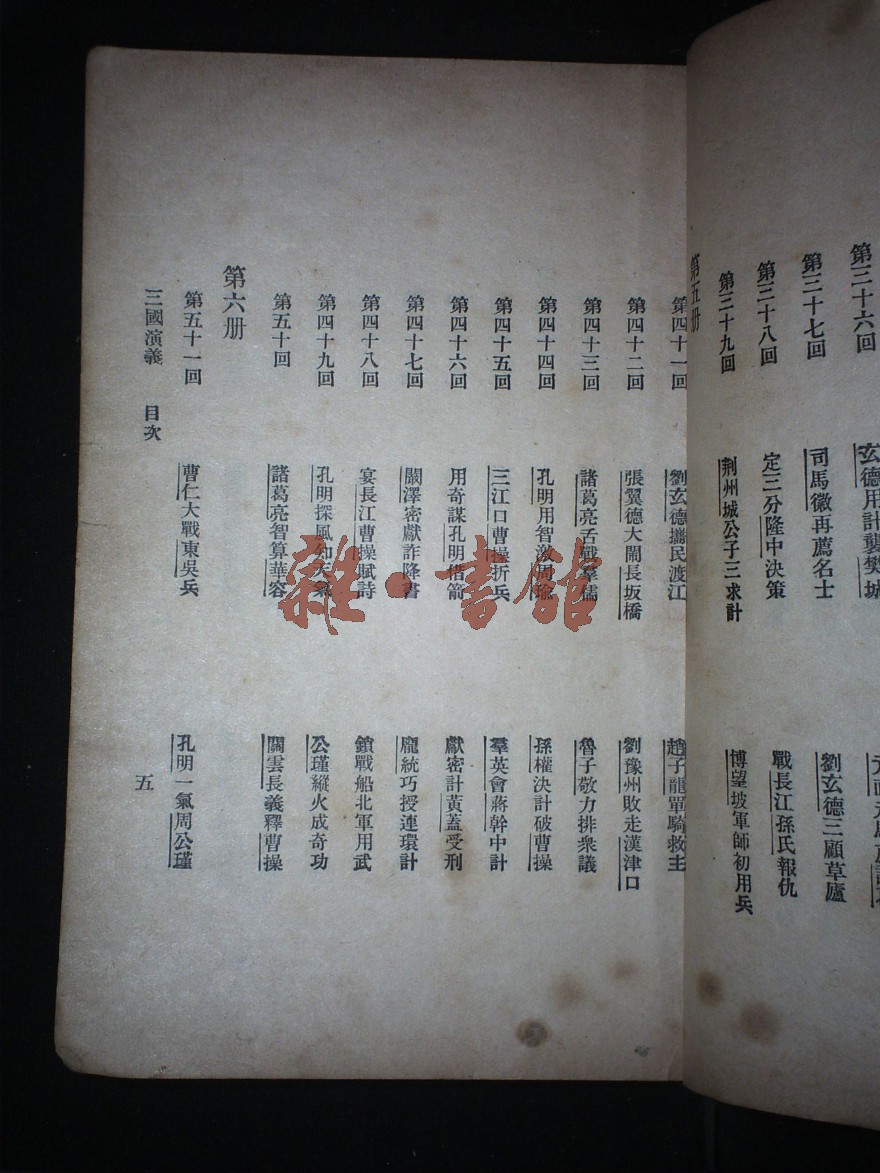 第三十六回 玄德用計襲樊城
第三十七回 司馬徽再薦名士 劉玄德三顧草廬
第三十八回 定三分隆中決策 戰長江孫氏報仇
第三十九回 荆州城公子三求計 博望坡軍師初用兵
第五册
第四十一回 劉玄德攜民渡江 趙子龍單騎救主
第四十二回 張翼德大鬧長坂橋 劉豫州敗走漢津口
第四十三回 諸葛亮舌戰羣儒 魯子敬力排衆議
第四十四回 孔明用智激周瑜 孫權決計破曹操
第四十五回 三江口曹操折兵 羣英會蔣幹中計
第四十六回 用奇謀孔明借箭 獻密計黃蓋受刑
第四十七回 闞澤密獻詐降書 龐統巧授連環計
第四十八回 宴長江曹操賦詩 鎖戰船北軍用武
第四十九回 孔明探風知天氣 公瑾縱火成奇功
第五十回 諸葛亮智算華容 關雲長義釋曹操
第六册
第五十一回 曹仁大戰東吳兵 孔明一氣周公瑾
三國演義 目次 五
雜·書館